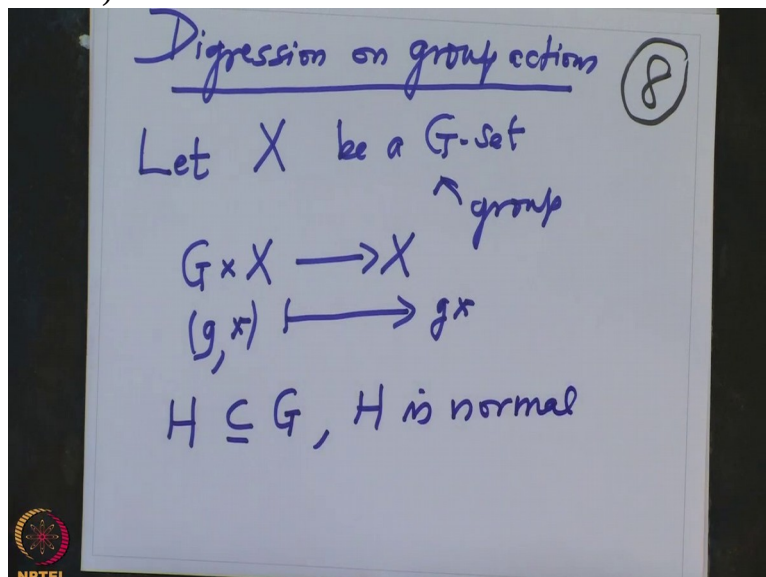 Digression on group actions
8
Let X be a G-set
↖ group
G × X ⟶ X
(g, x) ⟼ gx
H ⊆ G, H is normal
NPTEL